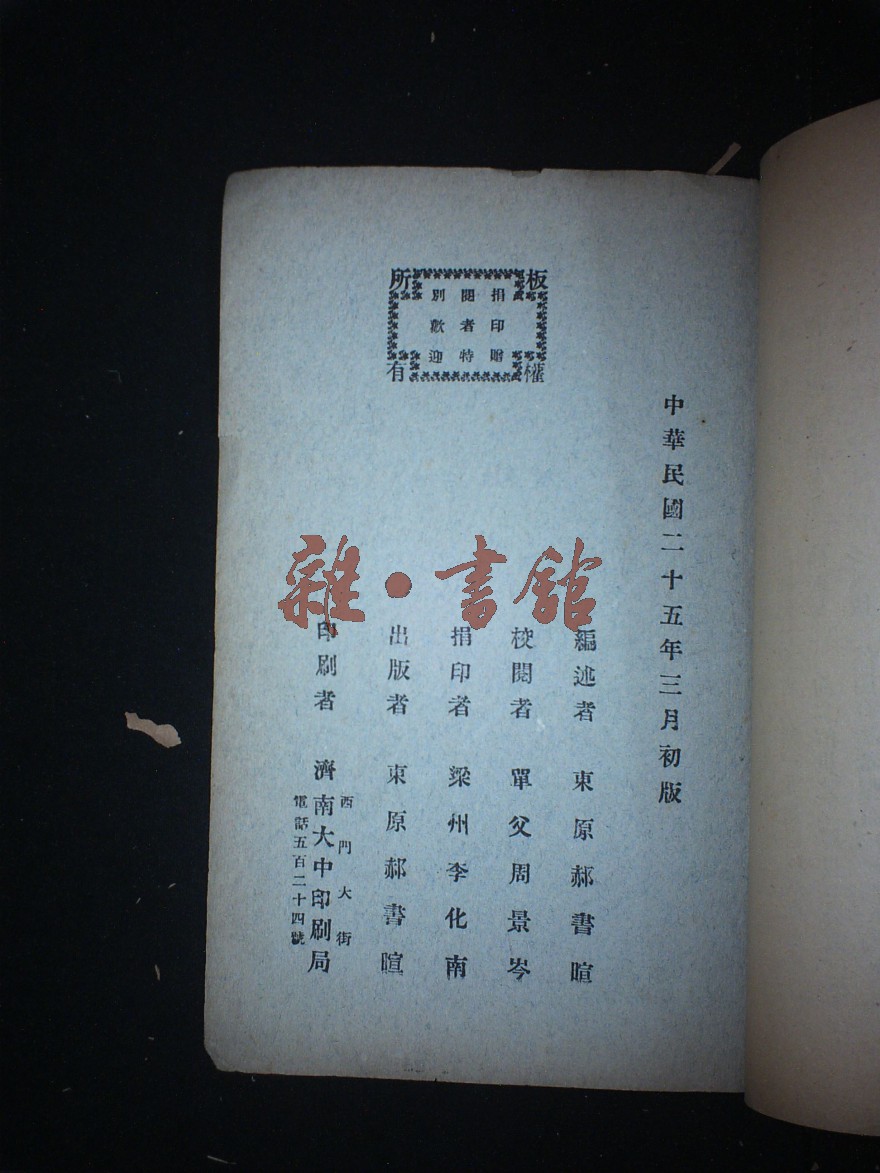 板權所有
捐印贈
閱者特
別歡迎
中華民國二十五年三月初版
編述者 東原郝書暄
校閱者 單父周景岑
捐印者 梁州李化南
出版者 東原郝書暄
印刷者 濟南大中印刷局
西門大街
電話五百二十四號
雜·書館